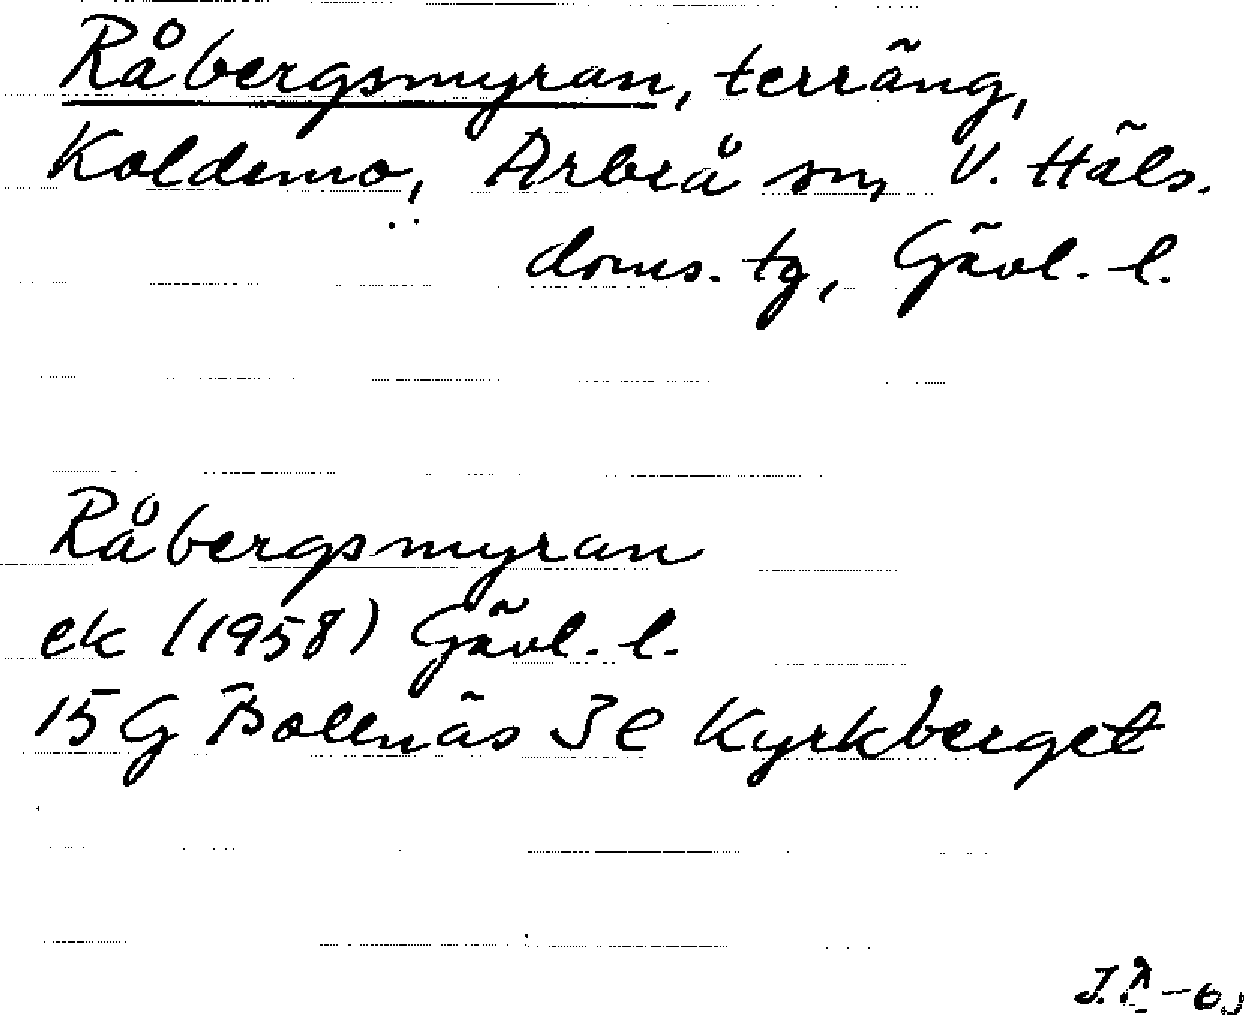 Råbergsmyran, terräng,
Koldemo, Arbrå sn, V. Häls.
doms. tg, Gävl. l.
Råbergsmyran
ek (1958) Gävl. l.
15 G Bollnäs 3 e Kyrkberget